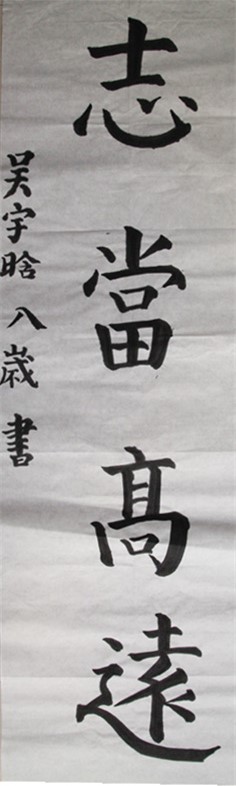 志當髙遠
吴宇晗八歳書